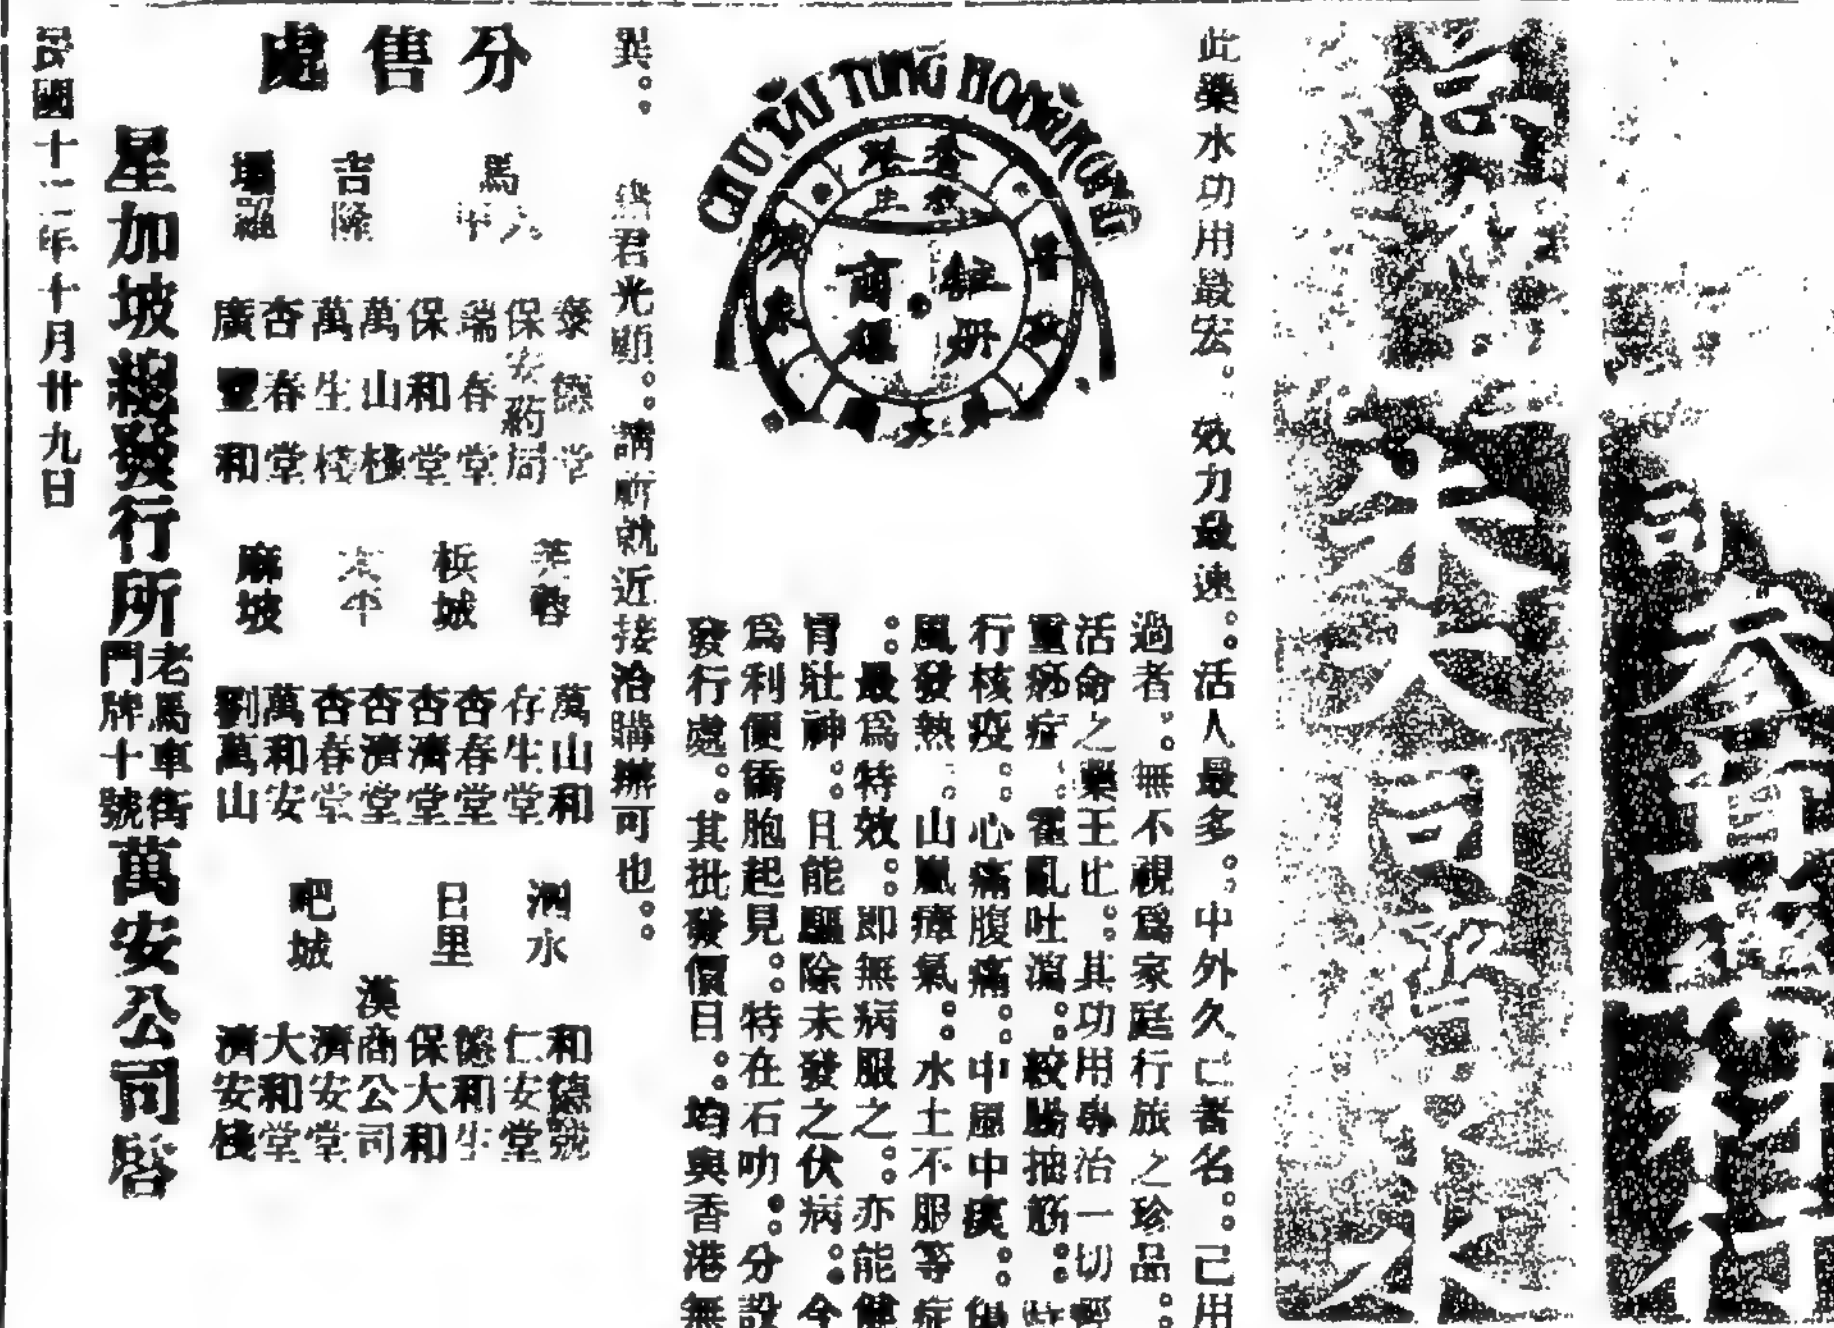 司
参茸藥行
急
朱大同
水
此藥水功用最宏。效力最速。活人最多。中外久已著名。已用
過者。無不視爲家庭行旅之珍品。
活命之藥王也。其功用專治一切輕
重痧症。霍亂吐瀉。絞腸抽筋。
行核疫。心痛腹痛。中風中痰。傷
風發熱。山嵐瘴氣。水土不服等症
。最爲特效。即無病服之。亦能健
胃壯神。且能驅除未發之伏病。今
爲利便僑胞起見。特在石叻。分設
發行處。其批發價目。均與香港無
異。君光顧。請就近接洽購辦可也。
CHU TUNG HONG KONG
註册
商標
分售處
馬六甲
吉隆
壩羅
泰德堂
保安葯局
瑞春堂
保和堂
萬山棧
萬生棧
杏春堂
廣豐和
芙蓉
梹城
太平
麻坡
萬山和
存生堂
杏春堂
杏濟堂
杏濟堂
杏春堂
萬和安
劉萬山
泗水
日里
吧城
和德號
仁安堂
德和生
保大和
漢商公司
濟安堂
大和堂
濟安棧
星加坡總發行所
老馬車街
門牌十號
萬安公司啓
民國十二年十月廿九日